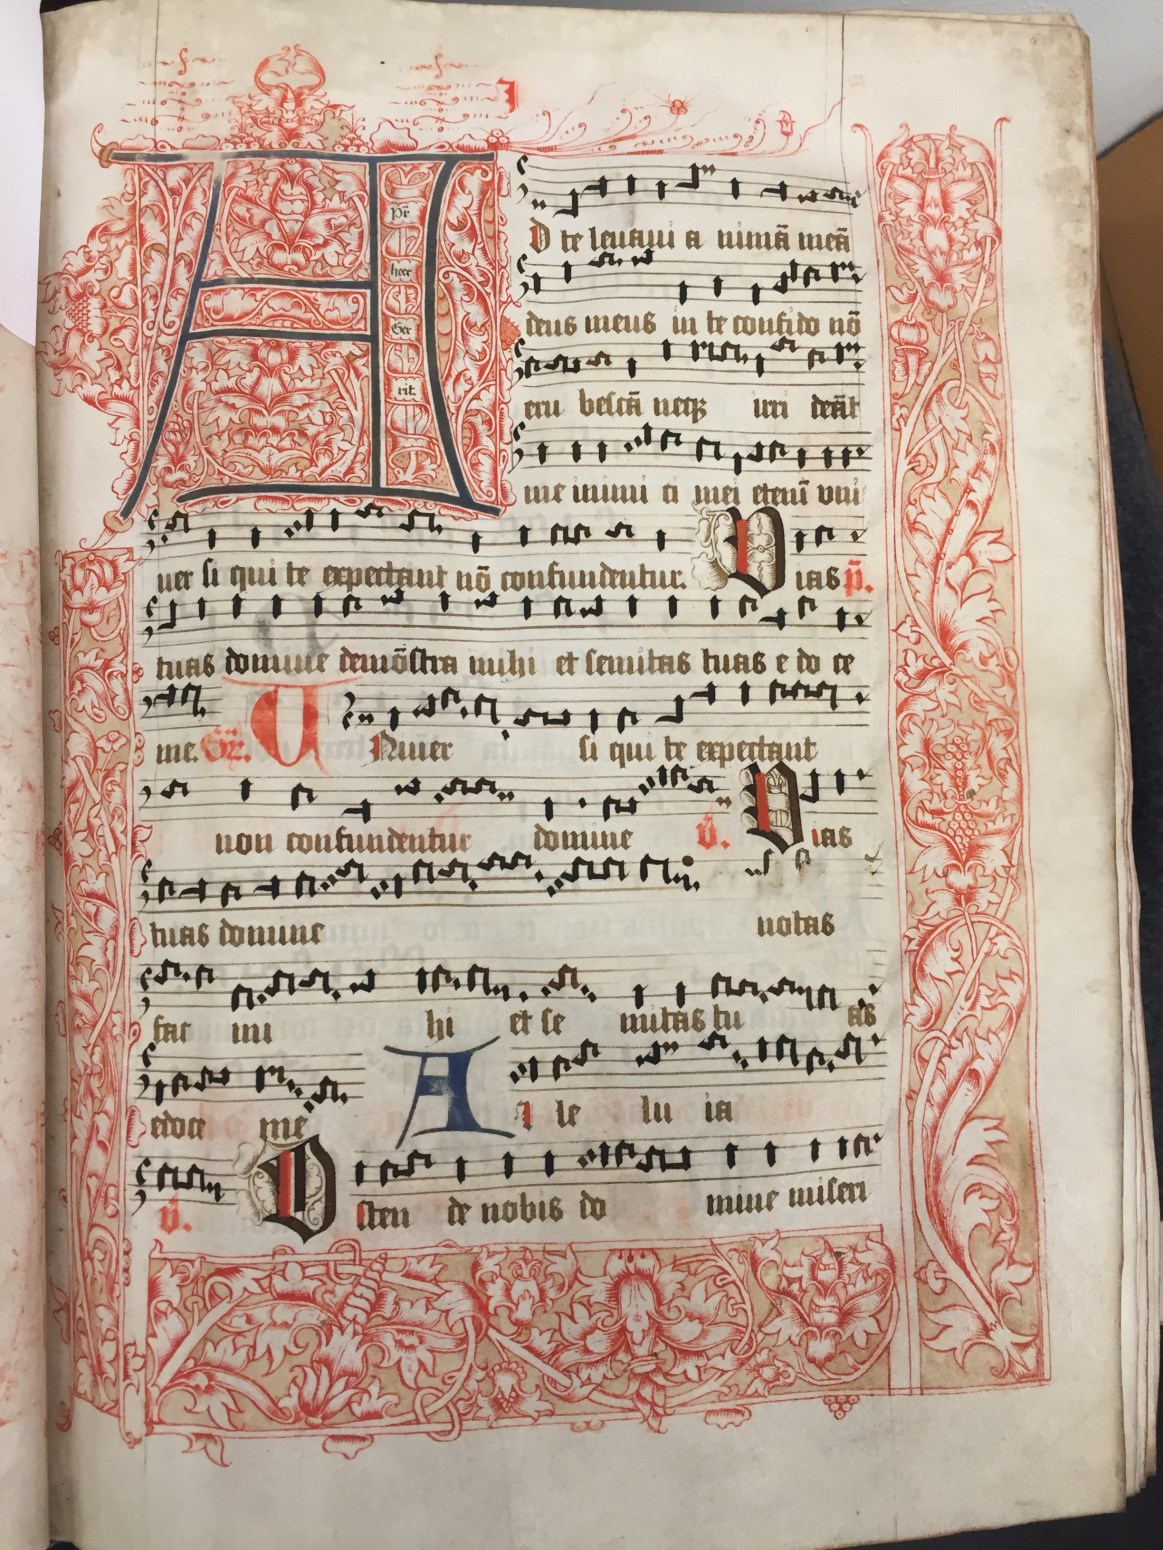 I
A
Pr̄
hoec
Ger
rit.
D te leuaui a nimā meā
deus meus in te confido nō
eru bescā neqꝫ irri deāt
me inimi ci mei etenī vni
uer si qui te expectant nō confundentur. Vias p̄.
tuas domine demōstra mihi et semitas tuas e do ce
me. Gr̄. UNiuer si qui te expectant
non confundentur domine v̄. Vias
tuas domine notas
fac mi hi et se mitas tu as
edoce me Al le lu ia
v̄. Osten de nobis do mine miseri